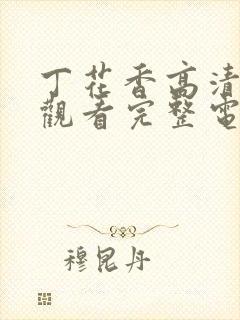 丁花香高清
觀看完整電
穆昆丹